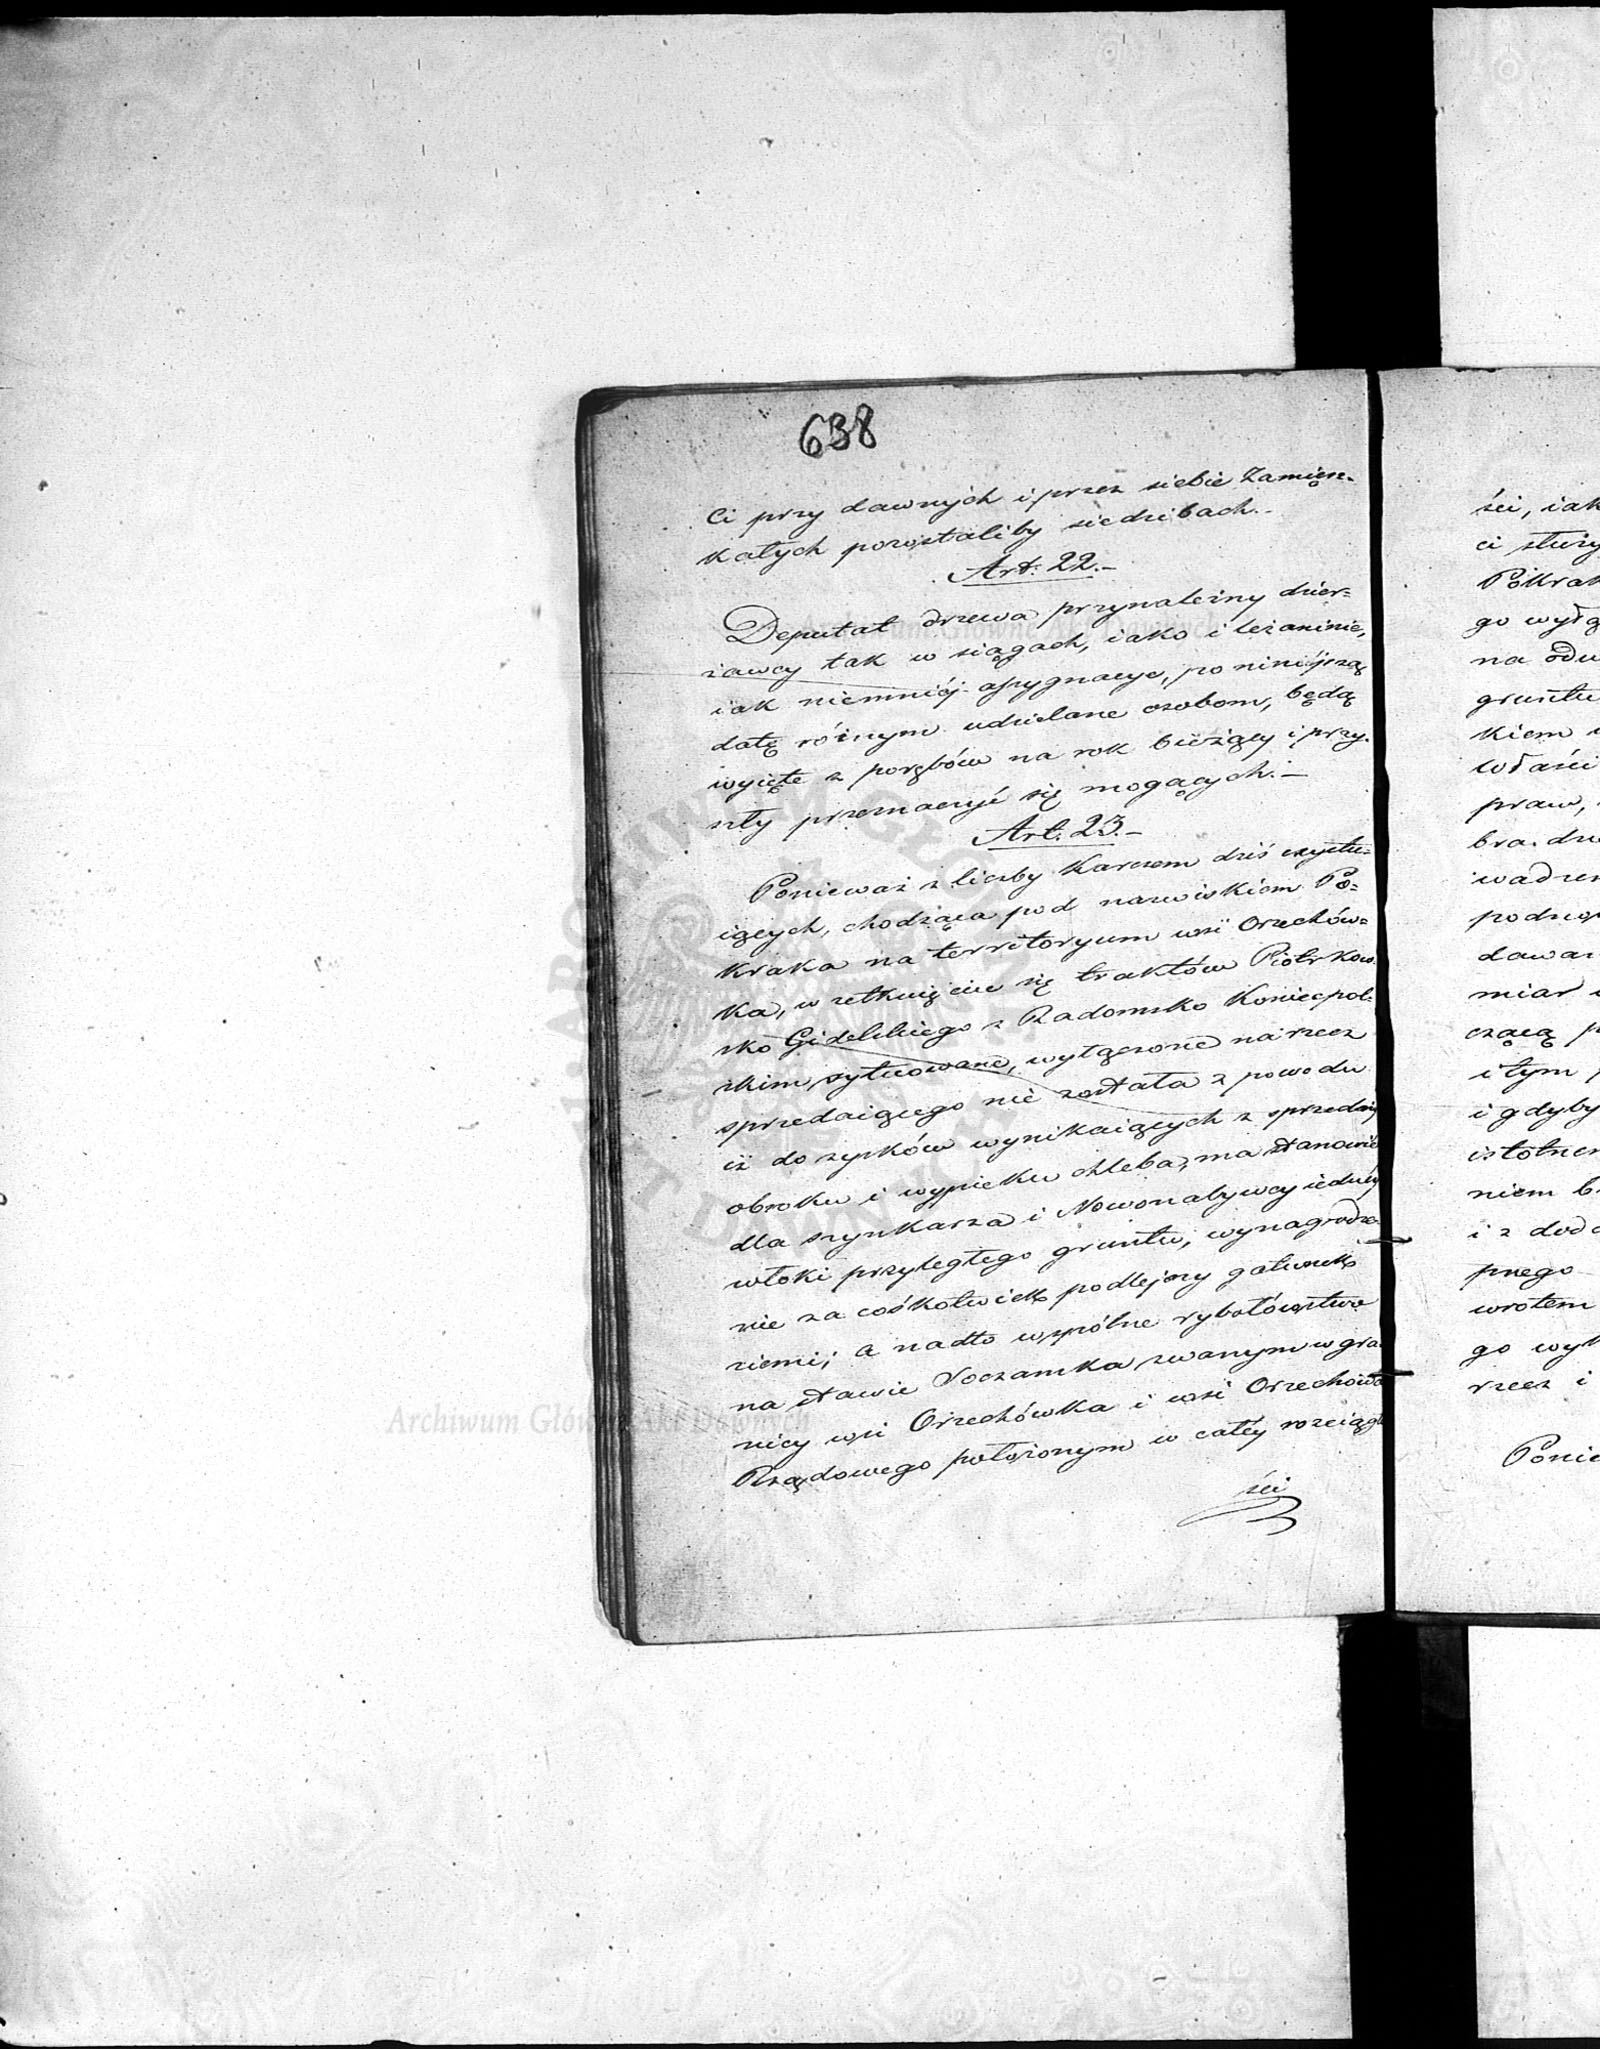 638
ci przy dawnych i przez siebie zamięsz-
kałych pozostaliby siedzibach.-
Art: 22.-
Deputat drzewa przynależny dzier=
żawcy tak w siągach, iako i leżaninie,
iak niemniéj assygnacye, po ninieyszą
datę różnym udzielane osobom, będą
wyięte z porębów na rok bieżący i przy-
szły przeznaczyć się mogących.-
Art. 23.-
Ponieważ z liczby Karczem dziś exystu=
iących, chodząca pod nazwiskiem Po=
kraka na territoryum wsi Orzechów=
ka, w zetknięciu się traktów Piotrkow-
sko Gidelskiego z Radomsko Koniecpol=
skim, sytuowana, wyłączone na rzecz
sprzedaiącego nie została z powodu
iż do zysków wynikaiących z sprzedaży
obroku i wypieku chleba, ma stanowić
dla szynkarza i Nowonabywcy iednéy
włoki przyległego gruntu, wynagrodze-
nie za cośkolwiek podlejszy gatunek
ziemi; a nadto wspólne rybołówstwo
na stawie Soczamka zwanym w gra-
nicy wsi Orzechówka i wsi Orzechowa
Rządowego położonym w całéy rozciągło
ści
ści, iak
ci służy
Pokrak
go wyłą
na odu
gruntu
kiem
właści
praw,
bra. dzi
wadzen
podnos
dawa
miar
czącą p
i tym
i gdyby
istotne
niem b
i z dod
pnego
wrotem
go wyk
rzecz i
Ponie
Archiwum Główne Akt Dawnych